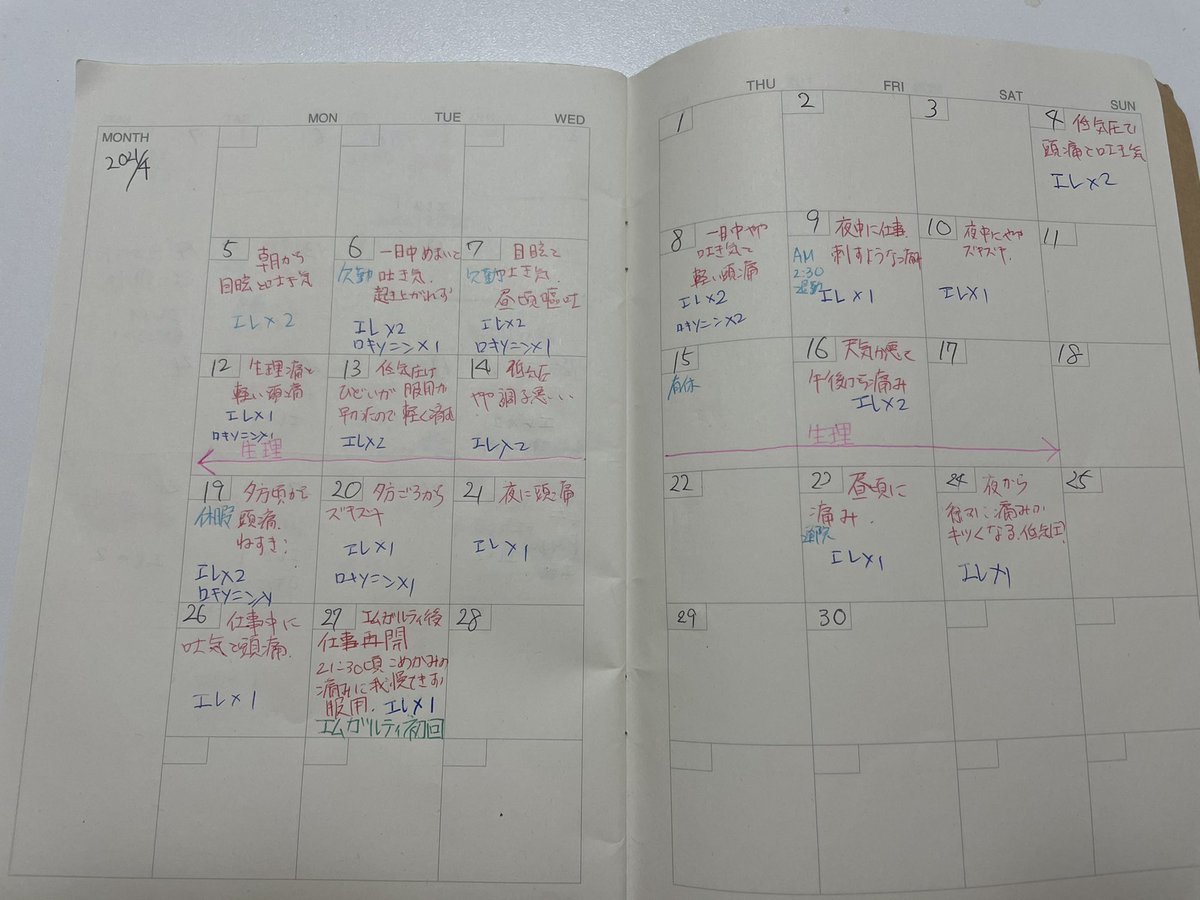 MONTH
2021/4
MON
TUE
WED
THU
FRI
SAT
SUN
1
2
3
4 低気圧で
頭痛と吐き気
エレ×2
5 朝から
目眩と吐き気
エレ×2
6 一日中めまいで
欠勤 吐き気
起き上がれず
エレ×2
ロキソニン×1
7 目眩で
欠勤 吐き気
昼頃嘔吐
エレ×2
ロキソニン×1
8 一日中やや
吐き気で
軽い頭痛
エレ×2
ロキソニン×2
9 夜中に仕事
AM 刺すような痛み
2:30
退勤 エレ×1
10 夜中にやや
ズキズキ.
エレ×1
11
12 生理痛と
軽い頭痛
エレ×1
ロキソニン×1
生理
13 低気圧は
ひどいが服用が
早かたので軽く済む
エレ×2
14 低気圧
やや調子悪い
エレ×2
15
有休
16 天気が悪く
午後から痛み
エレ×2
生理
17
18
19 夕方頃から
休暇 頭痛.
ねすぎ?
エレ×2
ロキソニン×1
20 夕方ごろから
ズキズキ
エレ×1
ロキソニン×1
21 夜に頭痛
エレ×1
22
23 昼頃に
痛み.
通院
エレ×1
24 夜から
徐々に痛みが
キツくなる.低気圧?
エレ×1
25
26 仕事中に
吐気で頭痛.
エレ×1
27 エムガルティ後
仕事再開
21:30頃こめかみの
痛みに我慢できず
服用. エレ×1
エムガルティ初回
28
29
30